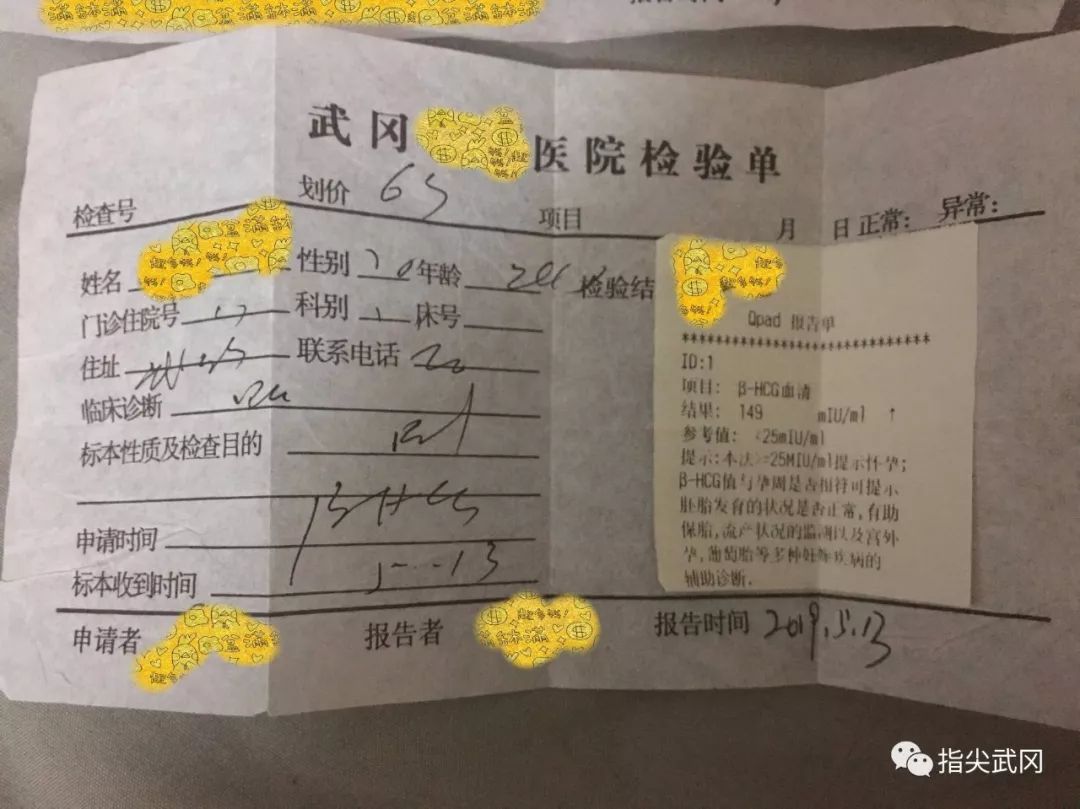 报告时间
武冈 医院检验单
检查号 划价 65 项目 月 日 正常: 异常:
姓名 性别 年龄 检验结
门诊住院号 科别 床号
住址 联系电话
临床诊断
标本性质及检查目的
β-HCG
申请时间
标本收到时间 5 13
申请者 报告者 报告时间 2019.5.13
Qpad 报告单
******************************
ID:1
项目: β-HCG血清
结果: 149 mIU/ml ↑
参考值: <25mIU/ml
提示:本法>=25MIU/ml提示怀孕;
β-HCG值与孕周是否相符可提示
胚胎发育的状况是否正常,有助
保胎,流产状况的监测以及宫外
孕,葡萄胎等多种妊娠疾病的
辅助诊断.
指尖武冈